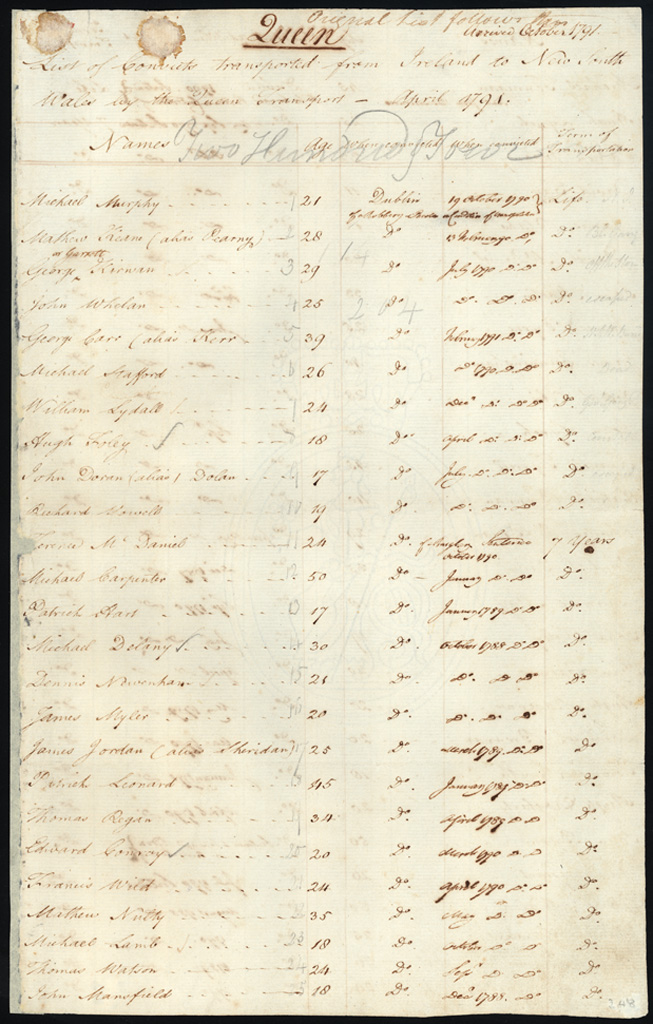 Original List follows this
Queen
Arrived October 1791.
List of Convicts transported from Ireland to New South
Wales by the Queen Transport — April 1791.
Names Age Where convicted When convicted Term of Transportation
Two Hundred & Four
Michael Murphy 1 21 Dublin 19 October 1790 Life
Mathew Keam (alias Kearny) 2 28 Do 13 February Do Do
or Garrett
George Kirwan 3 29 Do July 1790 Do Do Do
John Whelan 4 25 Do Do Do Do Do
204
George Carr (alias Kerr 5 39 Do February 1791 Do Do Do
Michael Stafford 6 26 Do Do 1790 Do Do Do
William Lydall 7 24 Do Decr Do Do Do
Hugh Foley 8 18 Do April Do Do Do
John Doran (alias) Dolan 9 17 Do July Do Do Do
Richard Howell 10 19 Do Do Do Do Do
Terence Mc Daniel 11 24 Do 7 Years
October 1790
Michael Carpenter 12 50 Do January Do Do Do
Patrick Hart 13 17 Do January 1789 Do Do Do
Michael Delany 14 30 Do October 1788 Do Do Do
Dennis Newenham 15 21 Do Do Do Do Do
James Myler 16 20 Do Do Do Do Do
James Jordan (alias Sheridan) 17 25 Do March 1789 Do Do Do
Patrick Leonard 18 45 Do January 1789 Do Do Do
Thomas Regan 19 34 Do April 1789 Do Do Do
Edward Conroy 20 20 Do March 1790 Do Do Do
Francis Wild 21 24 Do April 1790 Do Do Do
Mathew Nutty 22 35 Do May Do Do Do
Michael Lamb 23 18 Do October Do Do Do
Thomas Watson 24 24 Do Sepr Do Do Do
John Mansfield 25 18 Do Decr 1788 Do Do
248